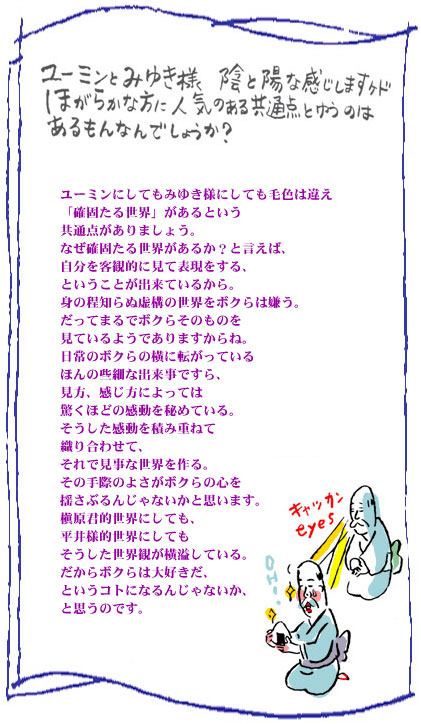 ユーミンとみゆき様、陰と陽な感じしますケド
ほがらかな方に人気のある共通点とゆうのは
あるもんなんでしょうか?
ユーミンにしてもみゆき様にしても毛色は違え
「確固たる世界」があるという
共通点がありましょう。
なぜ確固たる世界があるか?と言えば、
自分を客観的に見て表現をする、
ということが出来ているから。
身の程知らぬ虚構の世界をボクらは嫌う。
だってまるでボクらそのものを
見ているようでありますからね。
日常のボクらの横に転がっている
ほんの些細な出来事ですら、
見方、感じ方によっては
驚くほどの感動を秘めている。
そうした感動を積み重ねて
織り合わせて、
それで見事な世界を作る。
その手際のよさがボクらの心を
揺さぶるんじゃないかと思います。
槇原君的世界にしても、
平井様的世界にしても
そうした世界観が横溢している。
だからボクらは大好きだ、
というコトになるんじゃないか、
と思うのです。
キャッカン
eyes
OH!